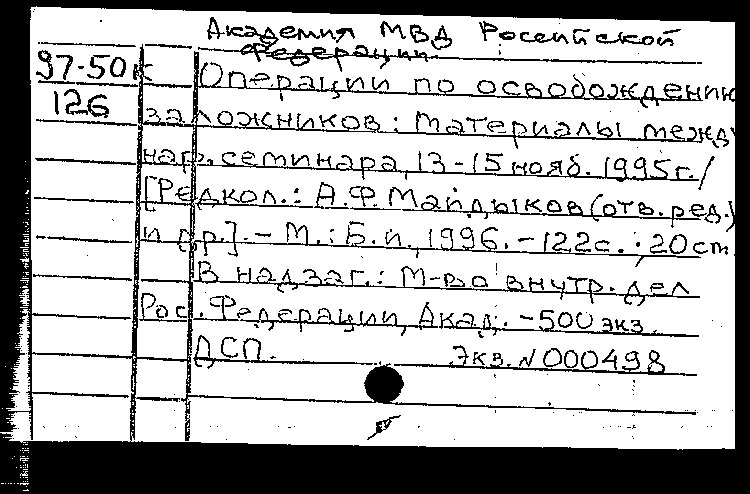 Академия МВД Российской
Федерации
97-50к
126
Операции по освобождению
заложников: Материалы между
нар. семинара, 13-15 нояб. 1995г. /
[Редкол.: А.Ф. Майдыков (отв. ред.)
и др.]. - М.: Б.и., 1996. - 122с.; 20cm
В надзаг.: М-во внутр. дел
Рос. Федерации, Акад. - 500 экз.
ДСП. Экз. N 000498